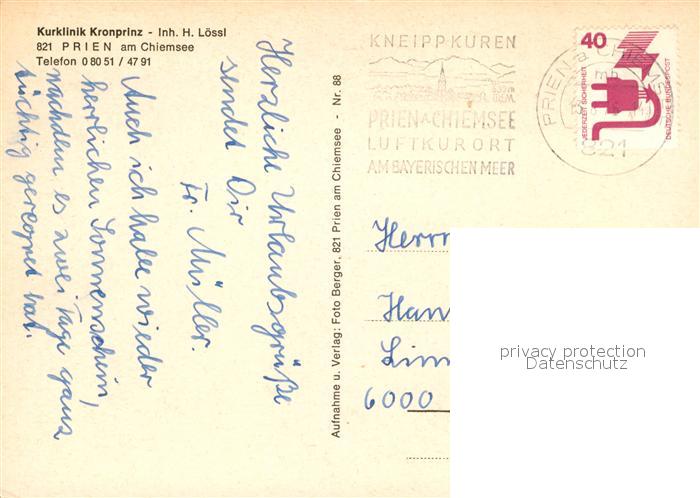 Kurklinik Kronprinz - Inh. H. Lössl
821 PRIEN am Chiemsee
Telefon 0 80 51 / 47 91
Herzliche Urlaubsgrüße
sendet Dir
Fr. Müller.
Auch ich habe wieder
herrlichen Sonnenschein,
nachdem es zwei Tage ganz
tüchtig geregnet hat.
Aufnahme u. Verlag: Foto Berger, 821 Prien am Chiemsee - Nr. 88
KNEIPPKUREN
PRIEN A CHIEMSEE
LUFTKURORT
AM BAYERISCHEN MEER
PRIEN a CHIEMSEE
mb
821
40
JEDERZEIT SICHERHEIT
DEUTSCHE BUNDESPOST
Herrn
Han
6000
privacy protection
Datenschutz